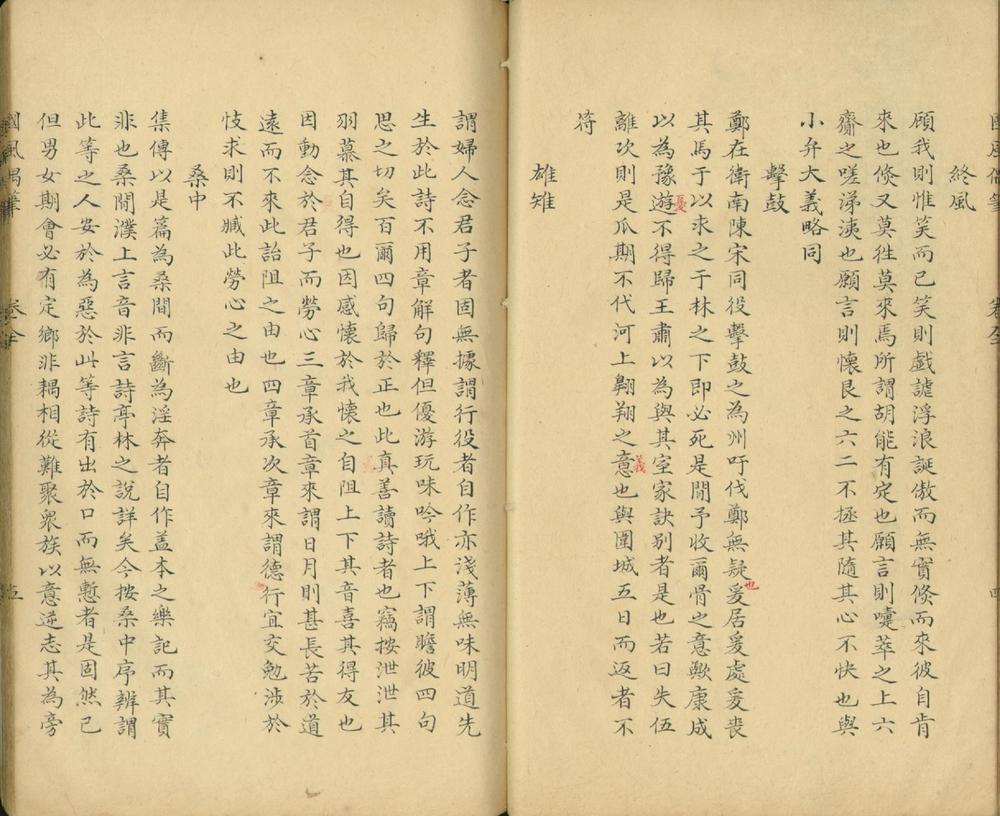 終風
顧我則惟笑而已笑則戱謔浮浪誕傲而無實倐而來彼自肯
來也倐又莫徃莫來焉所謂胡能有定也願言則嚏萃之上六
齎之嗟涕洟也願言則懷艮之六二不拯其隨其心不快也與
小弁大義略同
擊鼓
鄭在衛南陳宋同役擊鼓之為州吁伐鄭無疑也爰居爰處爰喪
其馬于以求之于林之下即必死是間予收爾骨之意歟康成
以為豫憂遊不得歸王肅以為與其室家訣別者是也若曰失伍
離次則是瓜期不代河上翱翔之意義也與圍城五日而返者不
符
雄雉
謂婦人念君子者固無據謂行役者自作亦淺薄無味明道先
生於此詩不用章解句釋但優游玩味吟哦上下謂瞻彼四句
思之切矣百爾四句歸於正也此真善讀詩者也竊按泄泄其
羽慕其自得也因感懷於我懷之自阻上下其音喜其得友也
因動念於君子而勞心三章承首章來謂日月則甚長苦於道
遠而不來此詒阻之由也四章承次章來謂德行宜交勉涉於
忮求則不臧此勞心之由也
桑中
集傳以是篇為桑間而斷為淫奔者自作盖本之樂記而其實
非也桑間濮上言音非言詩亭林之說詳矣今按桑中序辨謂
此等之人安於為惡於此等詩有出於口而無慙者是固然已
但男女期會必有定鄉非耦相從難聚衆族以意逆志其為旁